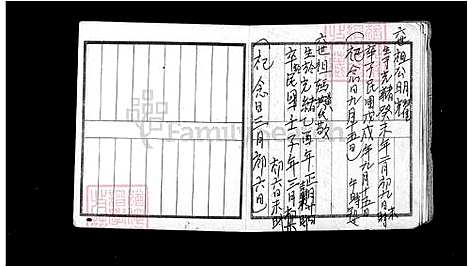 六世祖公明耀
生于光緒癸未年二月初九日未時
卒于民國戊戌年九月十五日午時
(祀念日九月十五日)
六世祖媽
生於光緒乙酉年正月
卒民國壬子年三月初六日未時
(祀念日三月初六日)
FamilySearch